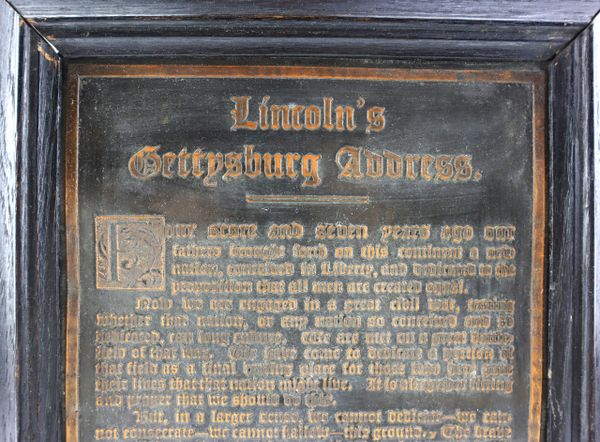 Lincoln's
Gettysburg Address.
Four score and seven years ago our
fathers brought forth on this continent a new
nation, conceived in Liberty, and dedicated to the
proposition that all men are created equal.
Now we are engaged in a great civil war, testing
whether that nation, or any nation so conceived and so
dedicated, can long endure. We are met on a great battle-
field of that war. We have come to dedicate a portion of
that field as a final resting place for those who here gave
their lives that that nation might live. It is altogether fitting
and proper that we should do this.
But, in a larger sense, we cannot dedicate—we can
not consecrate—we cannot hallow—this ground. The brave